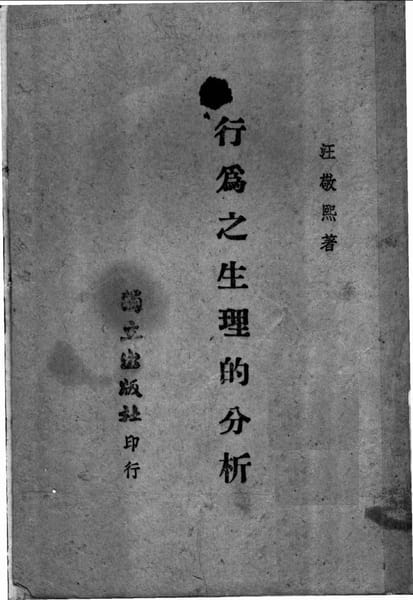 汪敬熙著
行爲之生理的分析
獨立出版社印行